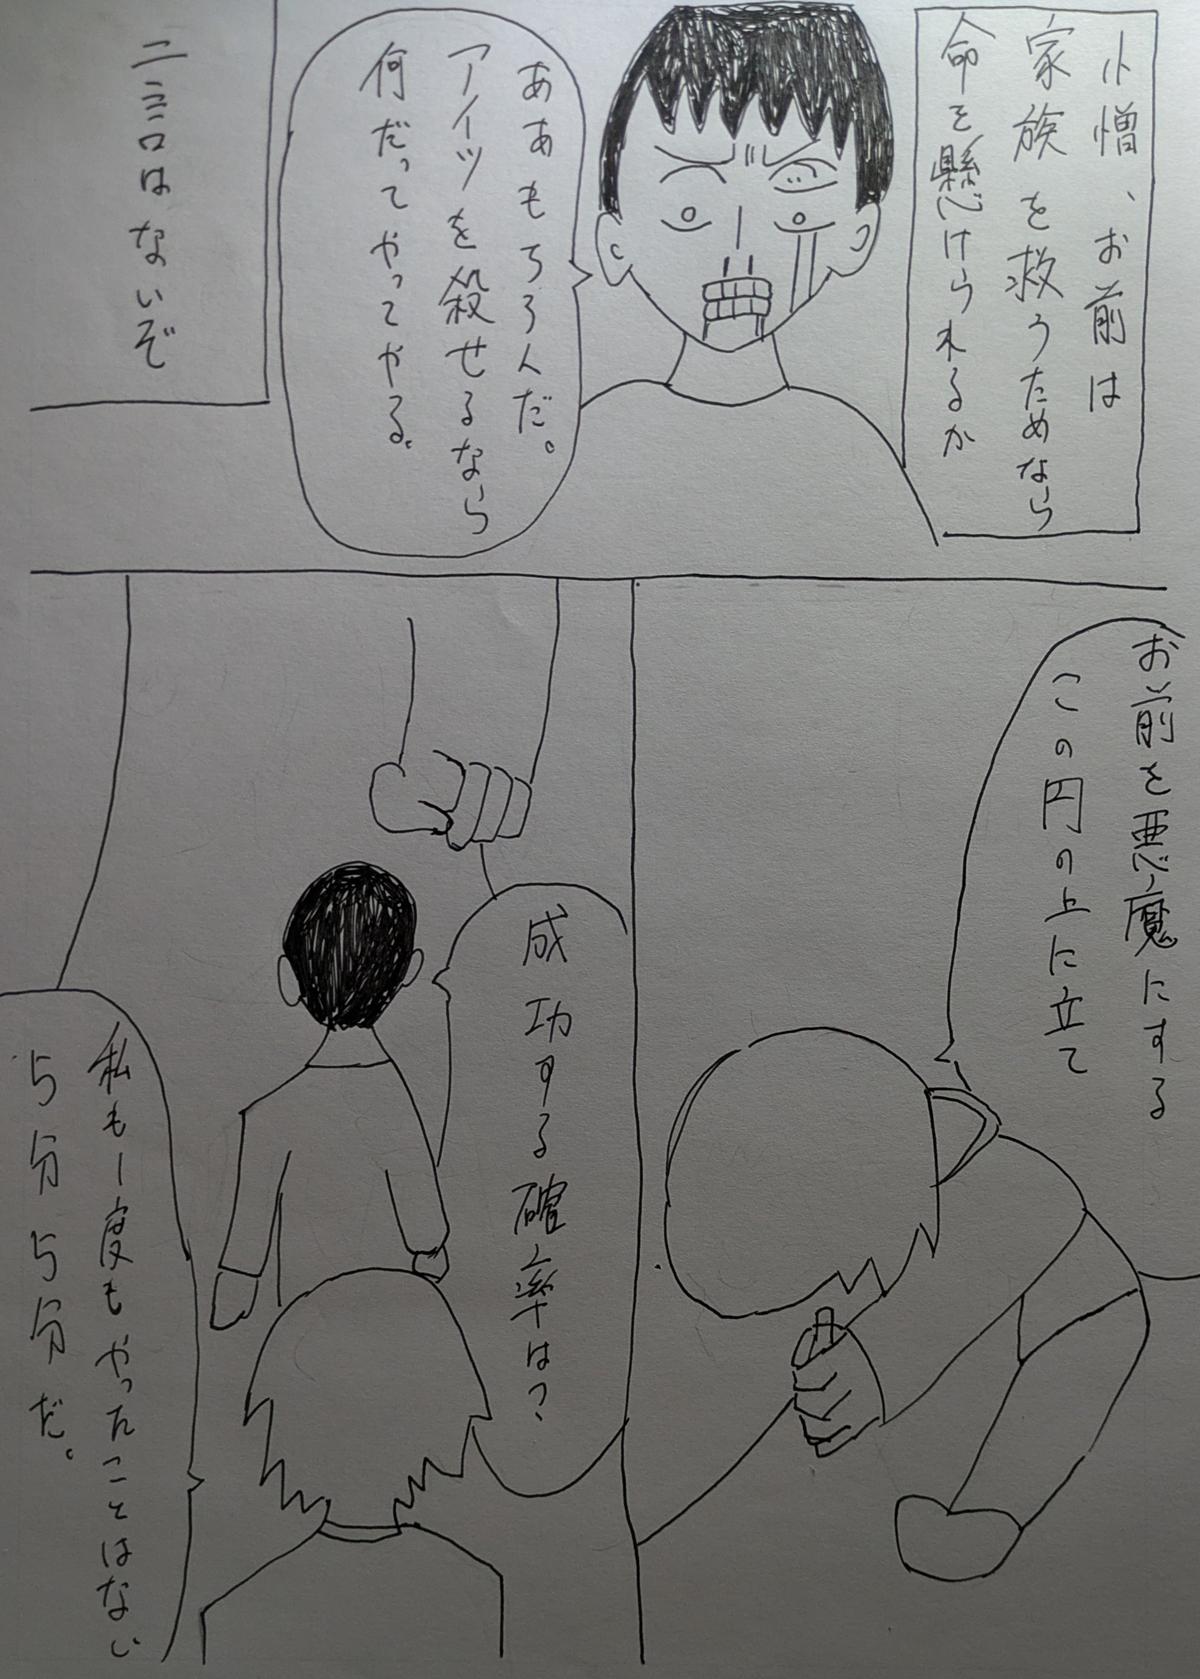 小憎、お前は
家族を救うためなら
命を懸けられるか
ああもちろんだ。
アイツを殺せるなら
何だってやってやる。
二言はないぞ
お前を悪魔にする
この円の上に立て
成功する確率は?
私も一度もやったことはない
5分5分だ。